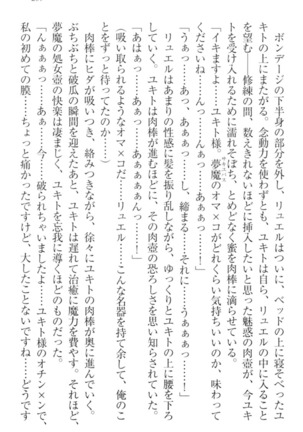 ボンデージの下半身の部分を外し、リュエルはついに、ベッドの上に寝そべったユ
キトの上にまたがる。念動力を使わずとも、ユキトは自ら、リュエルの中に入ること
を望む――修練の間、数えきれないほどに挿入したいと思った魅惑の肉壺が、今ユキ
トを受け入れるために濡れそぼち、とめどなく蜜を肉棒に滴らせている。
「イキますよ……ユキト様。夢魔のオマ×コがどれくらい気持ちいいのか、味わって
くださいね……んっ……んぁっ……あぁぁっ……！」
「うぁっ……ぁぁっ……し、締まる……それに……うぁぁっ……！」
リュエルはあまりの性感に髪を振り乱しながら、ゆっくりとユキトの上に腰を下ろ
していく。ユキトは肉棒が進むほどに、その肉壺の恐ろしさを思い知らされていた。
「あはぁっ……んぁっ……ぁぁぁっ……！」
（吸い取られるようなオマ×コだ……リュエル……こんな名器を持て余して、俺のこ
とをずっと待ってたのか……）
肉棒にヒダが吸いつき、絡みつきながら、徐々にユキトの肉棒が奥に進んでいく。
ぷちぷちと破瓜の瞬間を迎えたあと、ユキトは遅れて治癒に魔力を費やす。それほど、
夢魔の処女壺の快楽は凄まじく、ユキトを忘我に導くほどのものだった。
「あぁっ……あ……今……破られちゃいましたよ……ユキト様のオチン×ンで、
私の魔初めての膜……ちょっと痛かったですけど、大したことないですね……どうです